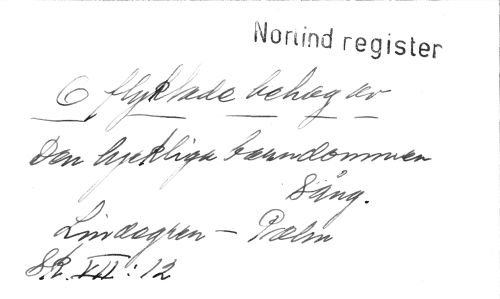 Norlind register
O flyktade behag av
Den lyckliga barndommen
Sång.
Lindegren - Palm
S.R. VII: 12